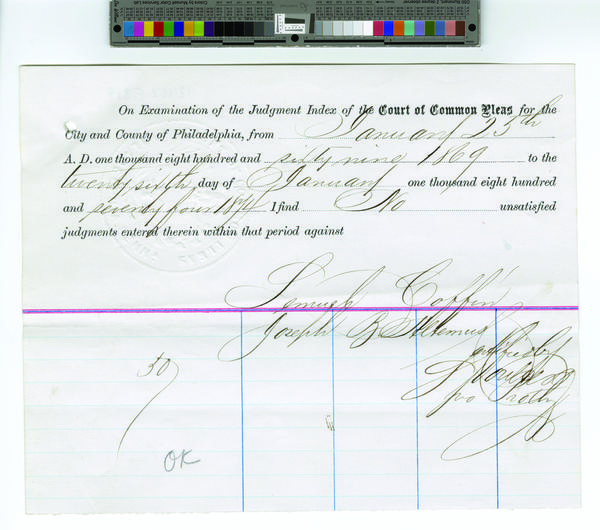 On Examination of the Judgment Index of the Court of Common Pleas for the
City and County of Philadelphia, from January 25th
A. D. one thousand eight hundred and sixty nine 1869 to the
twenty sixth day of January one thousand eight hundred
and seventy four 1874 I find No unsatisfied
judgments entered therein within that period against
Lemuel Coffin
Joseph B Altemus
50
pro Prothy
OK